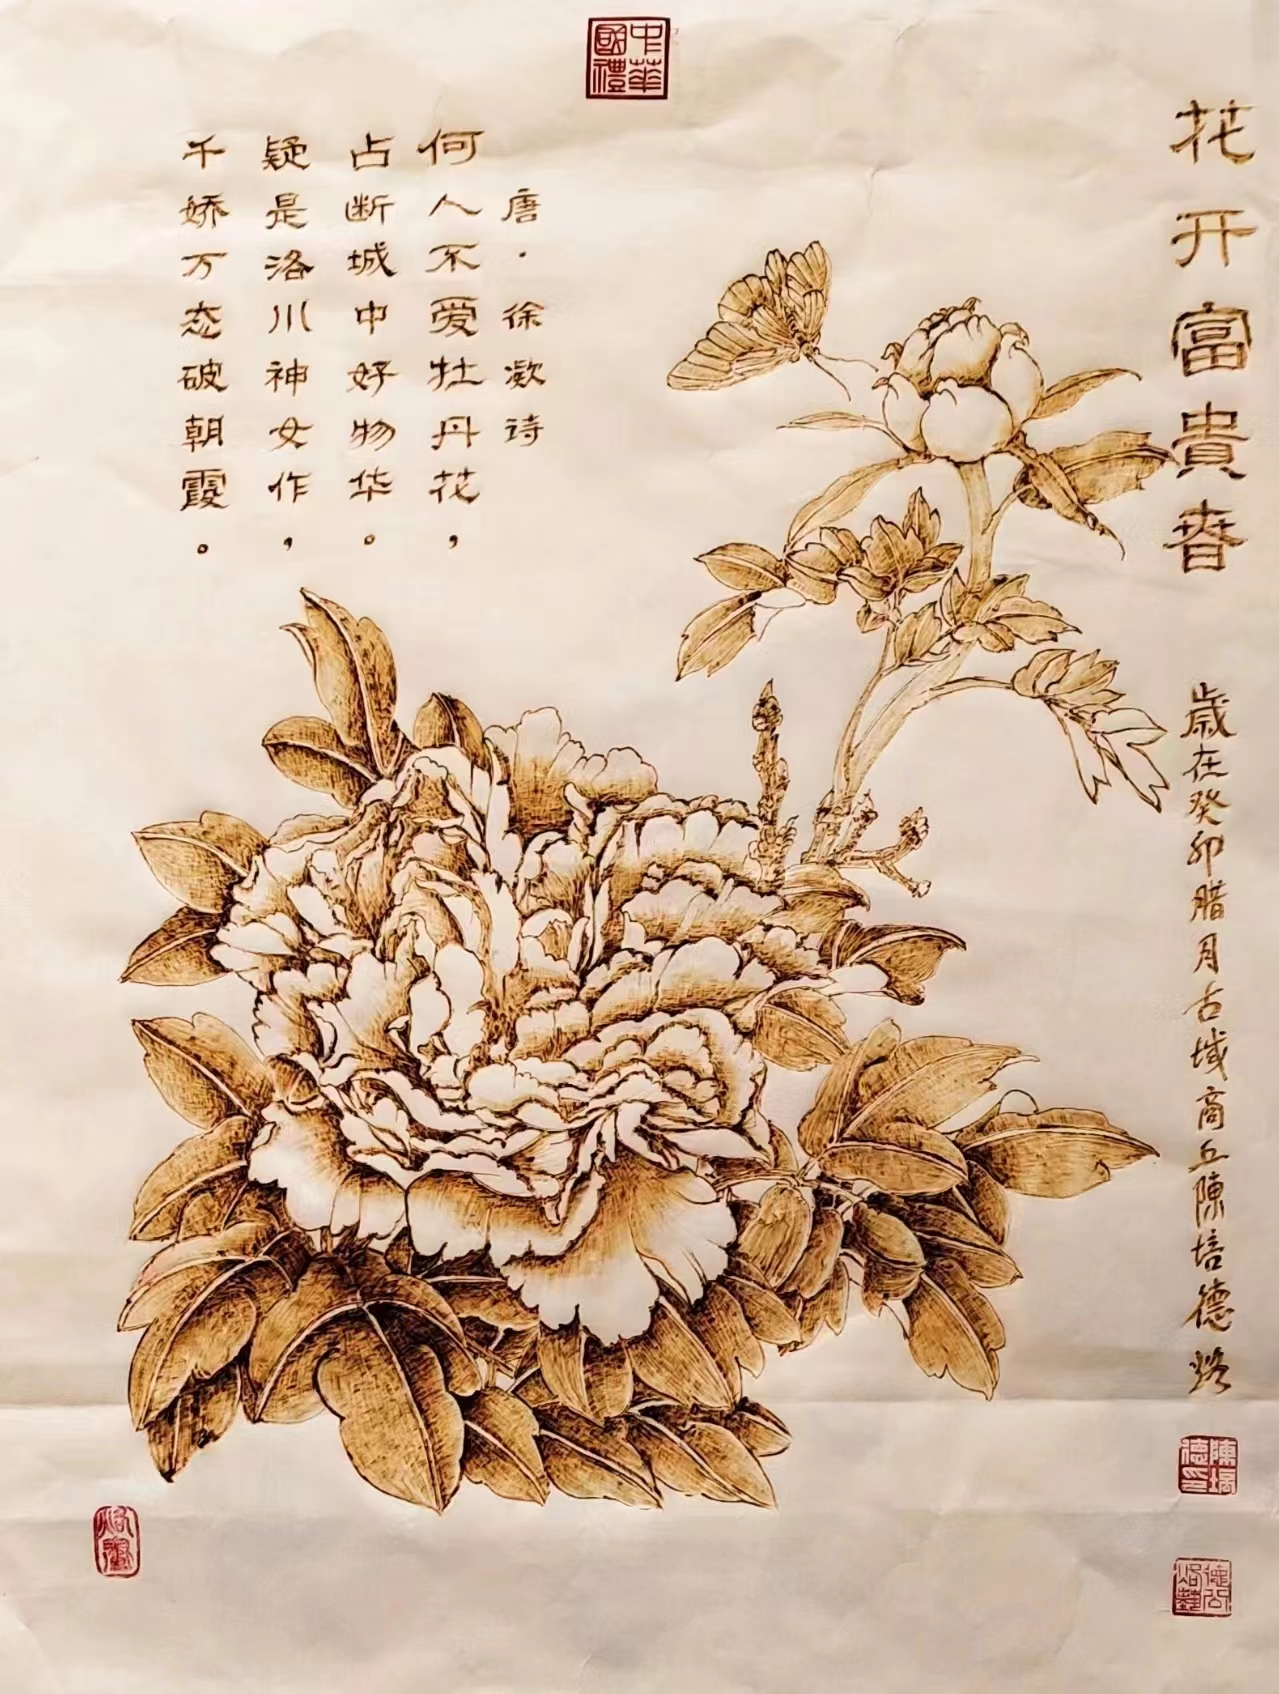 中華國禮
花开富貴春
歲在癸卯腊月古城商丘陳培德烙
陳培德印
德公烙藝
唐·徐凝诗
何人不爱牡丹花，
占断城中好物华。
疑是洛川神女作，
千娇万态破朝霞。
烙畫